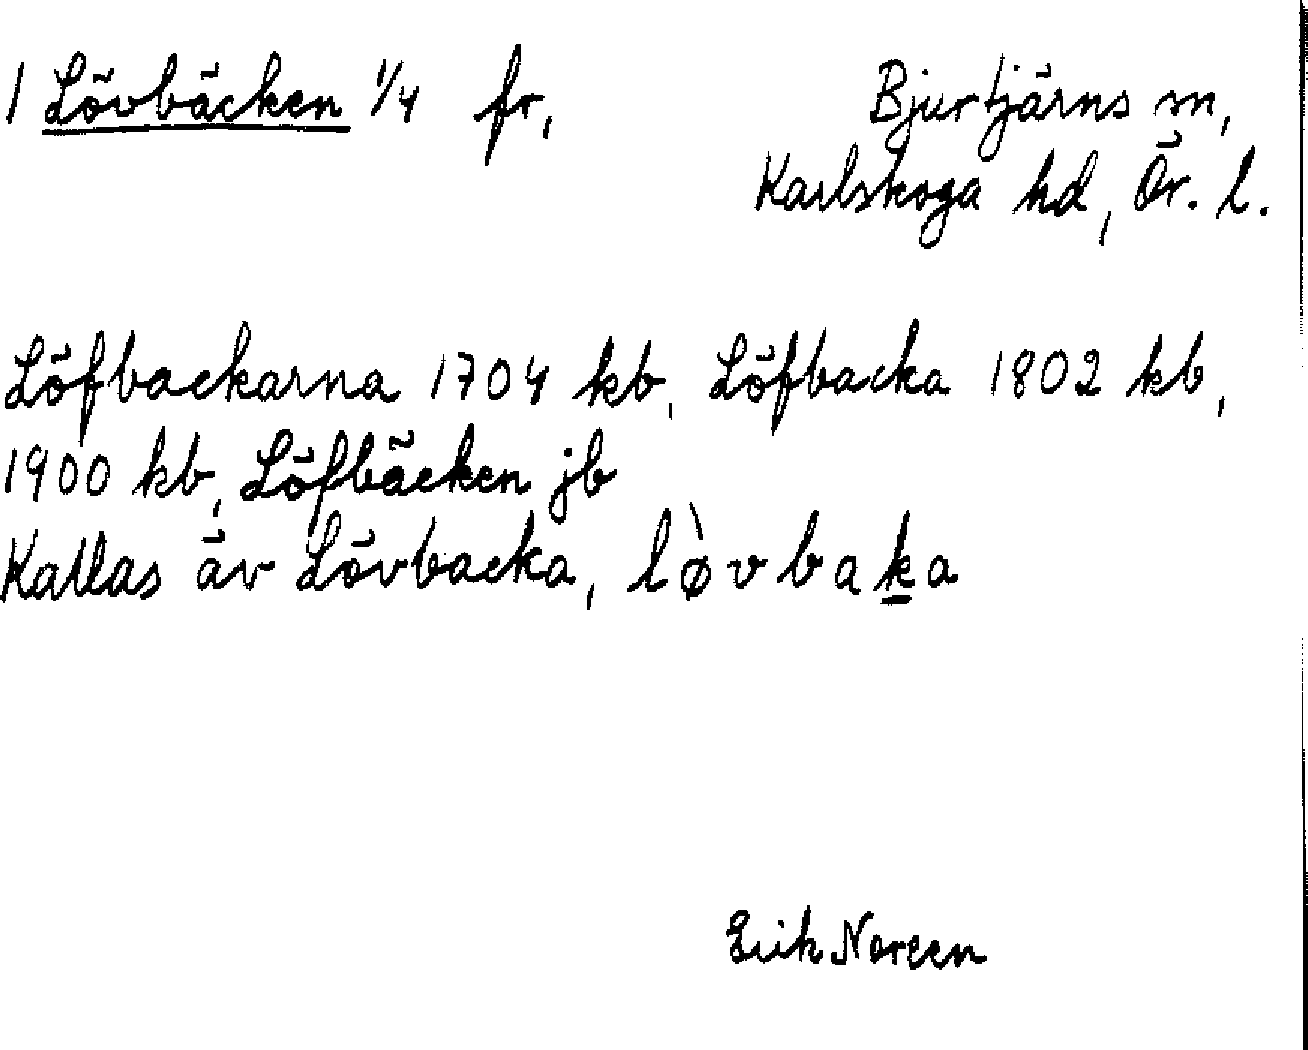 1 Lövbäcken 1/4 fr, Bjurtjärns sn,
Karlskoga hd, Ör. l.
Löfbackarna 1704 kb, Löfbacka 1802 kb,
1900 kb, Löfbäcken jb
Kallas äv Lövbacka, lø̀vbaḵa
Erik Noreen